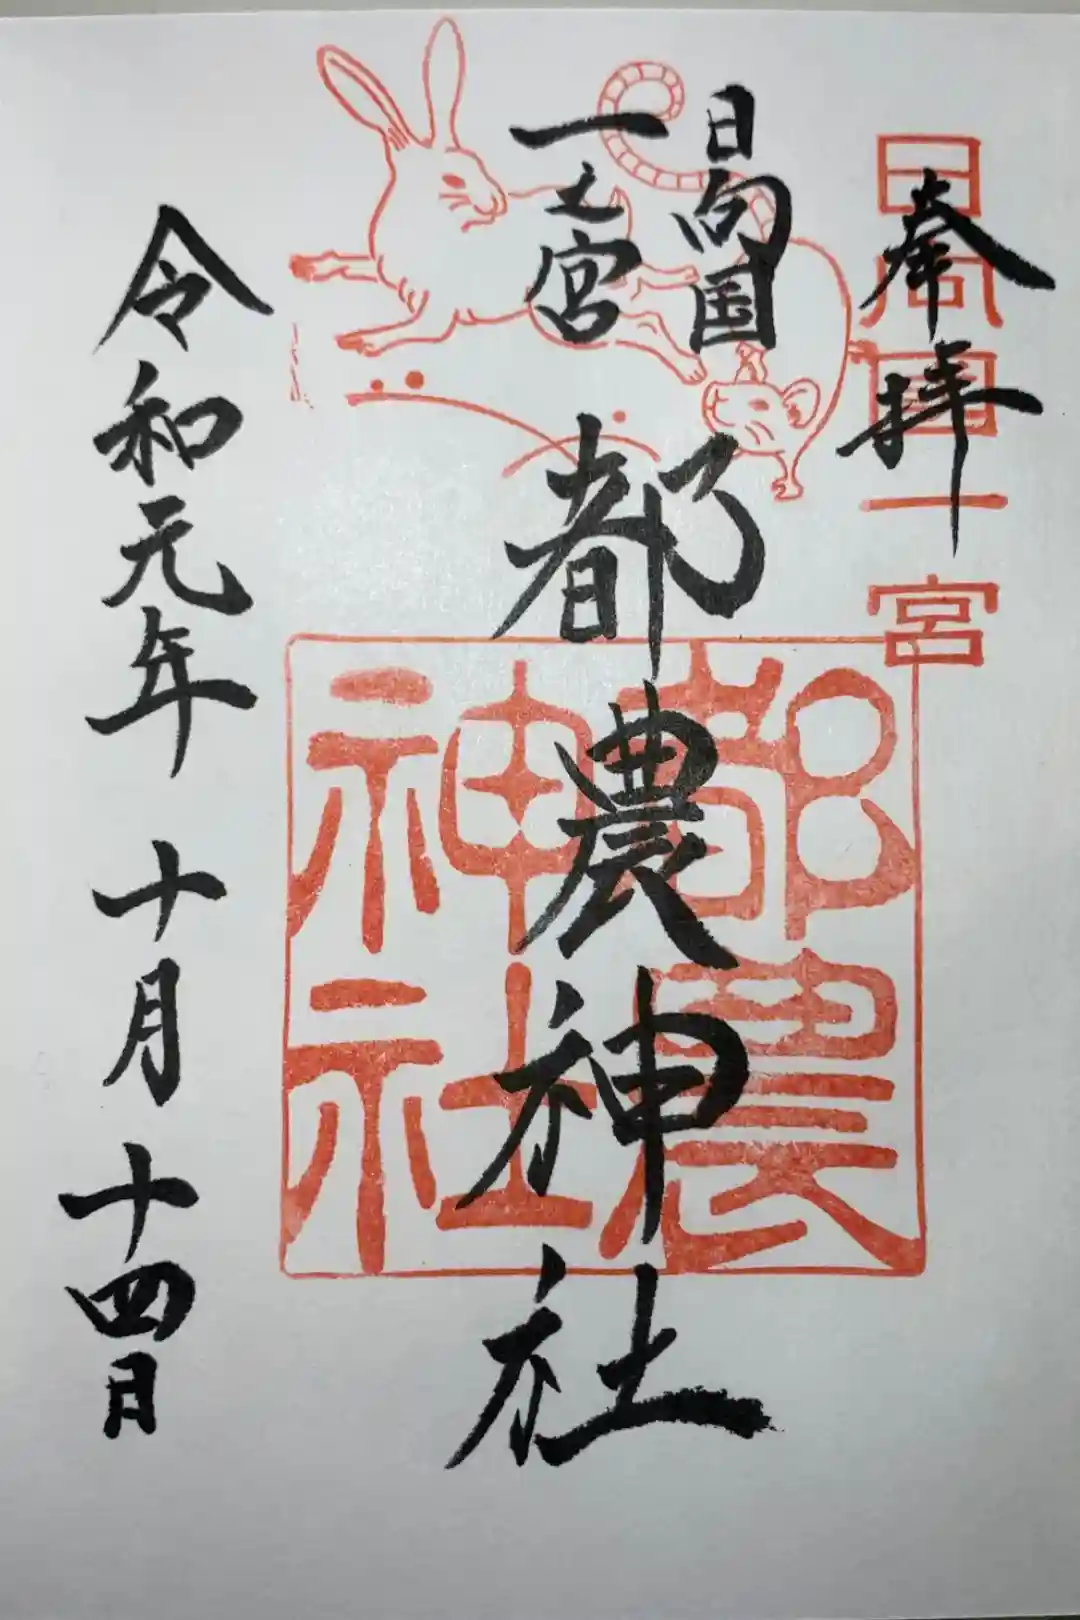 奉拝
日向國一宮
日向国
一之宮
都農神社
都農神社
令和元年 十月 十四日